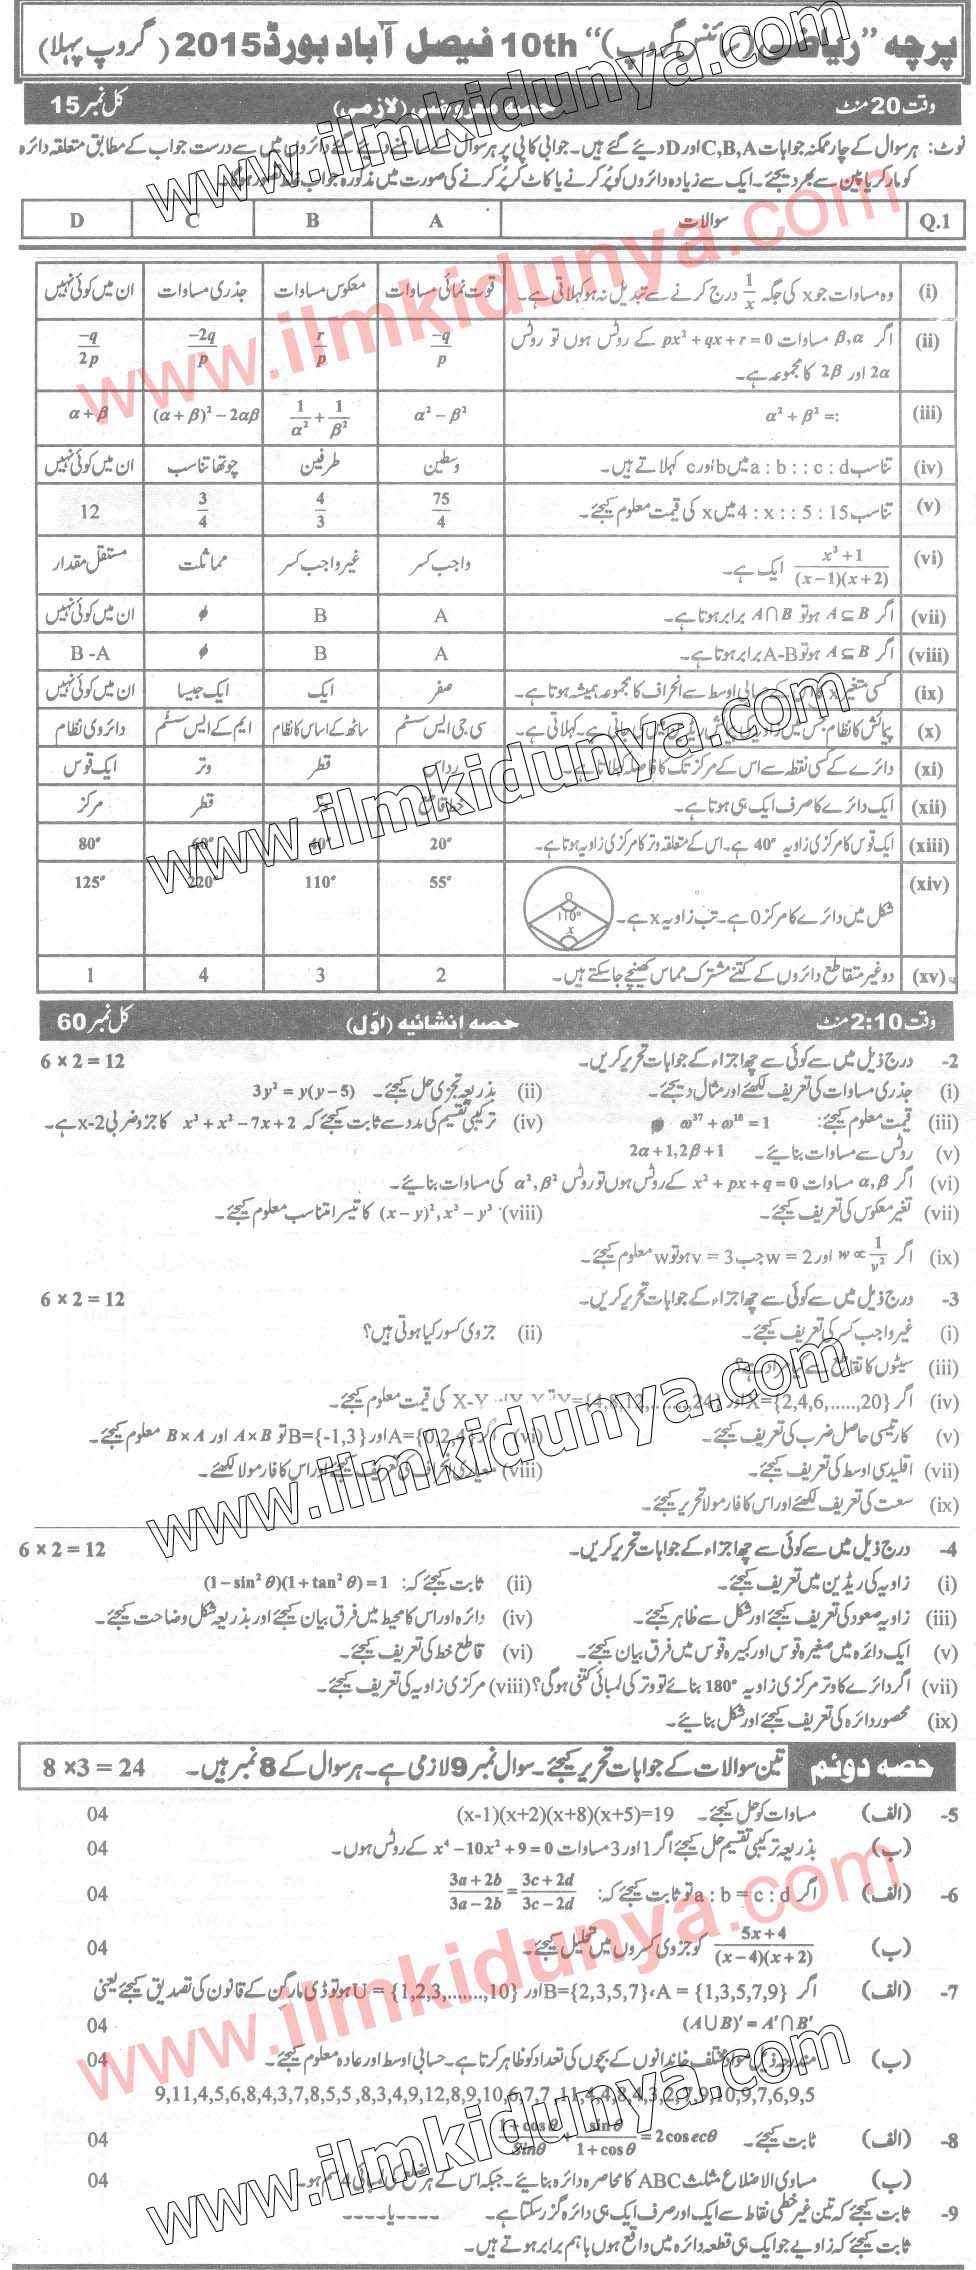 پرچہ "ریاضی (سائنس گروپ)" 10th فیصل آباد بورڈ 2015 (گروپ پہلا)
وقت 20 منٹ حصہ معروضی (لازمی) کل نمبر 15
نوٹ: ہر سوال کے چار ممکنہ جوابات C,B,A اور D دیئے گئے ہیں۔ جوابی کاپی پر ہر سوال کے سامنے دیئے گئے دائروں میں سے درست جواب کے مطابق متعلقہ دائرہ
کو مارکر یا پین سے بھر دیجئے۔ ایک سے زیادہ دائروں کو پُر کرنے یا کاٹ کر پُر کرنے کی صورت میں مذکورہ جواب غلط تصور ہوگا۔
Q.1 سوالات A B C D
(i) وہ مساوات جو x کی جگہ 1/x درج کرنے سے تبدیل نہ ہو کہلاتی ہے۔ قوت نمائی مساوات معکوس مساوات جذری مساوات ان میں کوئی نہیں
(ii) اگر β,α مساوات px² + qx + r = 0 کے روٹس ہوں تو روٹس 2α اور 2β کا مجموعہ ہے۔ -q/p r/p -2q/p -q/2p
(iii) α² + β² =: α² − β² 1/α² + 1/β² (α + β)² − 2αβ α + β
(iv) تناسب a : b : : c : d میں b اور c کہلاتے ہیں۔ وسطین طرفین چوتھا تناسب ان میں کوئی نہیں
(v) تناسب 4 : x : : 5 : 15 میں x کی قیمت معلوم کیجئے۔ 75/4 4/3 3/4 12
(vi) x³ + 1/(x−1)(x+2) ایک ہے۔ واجب کسر غیر واجب کسر مماثلت مستقل مقدار
(vii) اگر A ⊆ B ہو تو A∩B برابر ہوتا ہے۔ A B ϕ ان میں کوئی نہیں
(viii) اگر A ⊆ B ہو تو A-B برابر ہوتا ہے۔ A B ϕ B -A
(ix) کسی متغیر x کے حسابی اوسط سے انحراف کا مجموعہ ہمیشہ ہوتا ہے۔ صفر ایک ایک جیسا ان میں کوئی نہیں
(x) پیمائش کا نظام جس میں کی جاتی ہے۔ کہلاتی ہے۔ سی جی ایس سسٹم ساٹھ کے اساس کا نظام ایم کے ایس سسٹم دائروی نظام
(xi) دائرے کے کسی نقطہ سے اس کے مرکز تک کا فاصلہ کہلاتا ہے۔ رداس قطر وتر ایک قوس
(xii) ایک دائرے کا صرف ایک ہی ہوتا ہے۔ خط قاطع وتر قطر مرکز
(xiii) ایک قوس کا مرکزی زاویہ 40° ہے۔ اس کے متعلقہ وتر کا مرکزی زاویہ ہوتا ہے۔ 20° 40° 60° 80°
(xiv) شکل میں دائرے کا مرکز 0 ہے۔ تب زاویہ x ہے۔ O 110° x 55° 110° 220° 125°
(xv) دو غیر متقاطع دائروں کے کتنے مشترک مماس کھینچے جاسکتے ہیں۔ 2 3 4 1
وقت 2:10 منٹ حصہ انشائیہ (اوّل) کل نمبر 60
2- درج ذیل میں سے کوئی سے چھ اجزاء کے جوابات تحریر کریں۔ 6 × 2 = 12
(i) جذری مساوات کی تعریف لکھئے اور مثال دیجئے۔ (ii) بذریعہ تجزی حل کیجئے۔ 3y² = y(y − 5)
(iii) قیمت معلوم کیجئے: ω³⁷ + ω¹⁰ = 1 (iv) ترکیبی تقسیم کی مدد سے ثابت کیجئے کہ x³ + x² − 7x + 2 کا جزو ضربی x-2 ہے۔
(v) روٹس سے مساوات بنائیے۔ 2α + 1, 2β + 1
(vi) اگر α,β مساوات x² + px + q = 0 کے روٹس ہوں تو روٹس α², β² کی مساوات بنائیے۔
(vii) تغیر معکوس کی تعریف کیجئے۔ (viii) (x − y)², x³ − y³ کا تیسرا متناسب معلوم کیجئے۔
(ix) اگر w ∝ 1/v² اور w = 2 جب v = 3 ہو تو w معلوم کیجئے۔
3- درج ذیل میں سے کوئی سے چھ اجزاء کے جوابات تحریر کریں۔ 6 × 2 = 12
(i) غیر واجب کسر کی تعریف کیجئے۔ (ii) جزوی کسور کیا ہوتی ہیں؟
(iii) سیٹوں کا تقاطع سے کیا مراد ہے؟
(iv) اگر X={2,4,6,.....,20} اور Y={4,8,12,......,24} کی قیمت معلوم کیجئے۔
(v) کارتیسی حاصل ضرب کی تعریف کیجئے۔ (vi) اگر A={0,2,4} اور B={-1,3} تو A×B اور B×A معلوم کیجئے۔
(vii) اقلیدسی اوسط کی تعریف کیجئے۔ (viii) معیاری انحراف کی تعریف کیجئے اور اس کا فارمولا لکھئے۔
(ix) سعت کی تعریف لکھئے اور اس کا فارمولا تحریر کیجئے۔
4- درج ذیل میں سے کوئی سے چھ اجزاء کے جوابات تحریر کریں۔ 6 × 2 = 12
(i) زاویہ کی ریڈین میں تعریف کیجئے۔ (ii) ثابت کیجئے کہ: (1 − sin² θ)(1 + tan² θ) = 1
(iii) زاویہ صعود کی تعریف کیجئے اور شکل سے ظاہر کیجئے۔ (iv) دائرہ اور اس کا محیط میں فرق بیان کیجئے اور بذریعہ شکل وضاحت کیجئے۔
(v) ایک دائرہ میں صغیرہ قوس اور کبیرہ قوس میں فرق بیان کیجئے۔ (vi) قاطع خط کی تعریف کیجئے۔
(vii) اگر دائرے کا وتر مرکزی زاویہ 180° بنائے تو وتر کی لمبائی کتنی ہوگی؟ (viii) مرکزی زاویہ کی تعریف کیجئے۔
(ix) محصور دائرہ کی تعریف کیجئے اور شکل بنائیے۔
حصہ دوئم تین سوالات کے جوابات تحریر کیجئے۔ سوال نمبر 9 لازمی ہے۔ ہر سوال کے 8 نمبر ہیں۔ 8 ×3 = 24
5- (الف) مساوات کو حل کیجئے۔ (x-1)(x+2)(x+8)(x+5)=19 04
(ب) بذریعہ ترکیبی تقسیم حل کیجئے اگر 1 اور 3 مساوات x⁴ − 10x² + 9 = 0 کے روٹس ہوں۔ 04
6- (الف) اگر a : b = c : d تو ثابت کیجئے کہ: 3a + 2b/3a − 2b = 3c + 2d/3c − 2d 04
(ب) 5x + 4/(x − 4)(x + 2) کو جزوی کسروں میں تحلیل کیجئے۔ 04
7- (الف) اگر A = {1,3,5,7,9}، B={2,3,5,7} اور U = {1,2,3,........,10} ہو تو ڈی مارگن کے قانون کی تصدیق کیجئے یعنی
(A∪B)′ = A′∩B′ 04
(ب) مندرجہ ذیل مواد مختلف خاندانوں کے بچوں کی تعداد کو ظاہر کرتا ہے۔ حسابی اوسط اور عادہ معلوم کیجئے۔ 04
9,11,4,5,6,8,4,3,7,8,5,5 ,8,3,4,9,12,8,9,10,6,7,7 ,11,4,4,8,4,3,2,7,9,10,9,7,6,9,5
8- (الف) ثابت کیجئے۔ 1 + cosθ/sinθ + sinθ/1 + cosθ = 2cosecθ 04
(ب) مساوی الاضلاع مثلث ABC کا محاصرہ دائرہ بنائیے۔ جبکہ اس کے ہر ضلع کی لمبائی 4 سم ہو۔ 04
9- ثابت کیجئے کہ تین غیر خطی نقاط سے ایک اور صرف ایک ہی دائرہ گزر سکتا ہے۔ ----- یا -----
ثابت کیجئے کہ زاویے جو ایک ہی قطعہ دائرہ میں واقع ہوں باہم برابر ہوتے ہیں۔
www.ilmkidunya.com
www.ilmkidunya.com
www.ilmkidunya.com
www.ilmkidunya.com
www.ilmkidunya.com
www.ilmkidunya.com